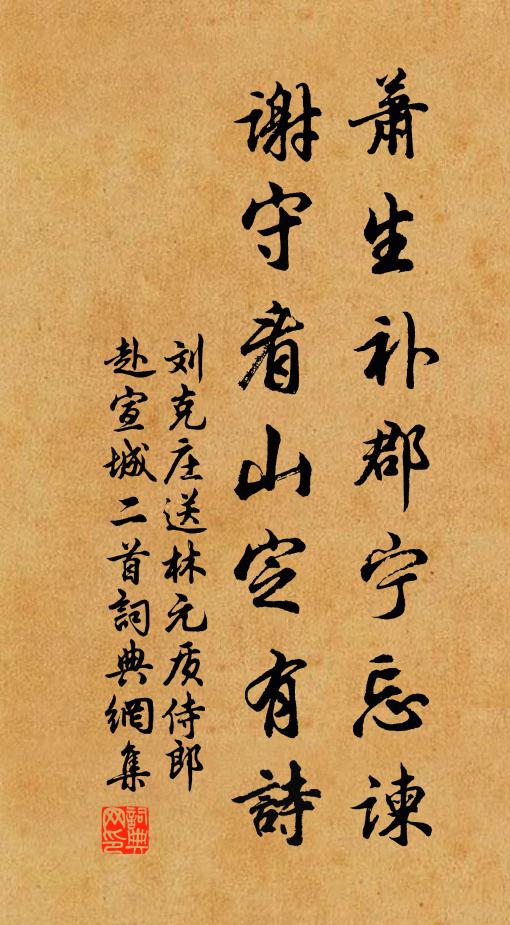 萧生补郡宁忘谏
谢守看山定有詩
刘克庄送林元质侍郎
赴宣城二首詞典網集
詞典
网印